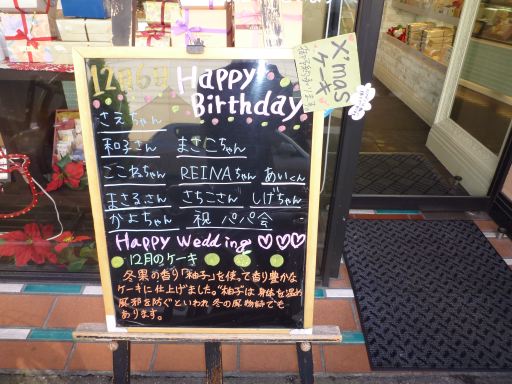 12月6日 Happy Birthday
X'mas
ケーキ
さえちゃん
和子さん まさこちゃん
ここねちゃん REINAちゃん あいくん
まさるさん さちこさん しげちゃん
かよちゃん 祝 パパ会
Happy Wedding
12月のケーキ
冬果の香り「柚子」を使って香り豊かな
ケーキに仕上げました。"柚子"は身体を温め
風邪を防ぐといわれ 冬の風物詩でも
あります。